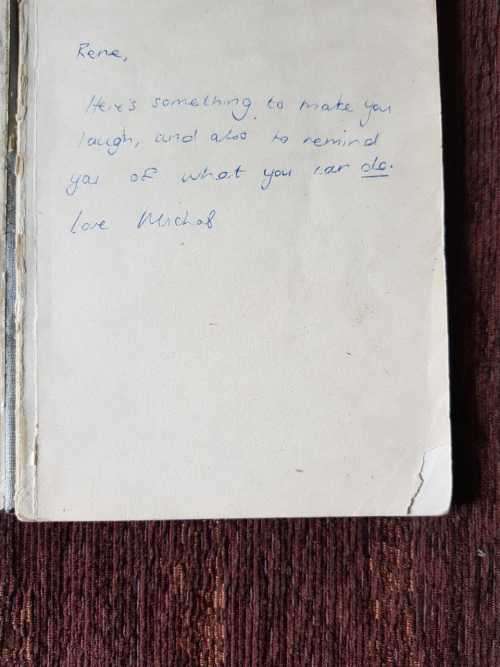 Rene,
Here's something to make you
laugh, and also to remind
you of what you can do.
love Michal